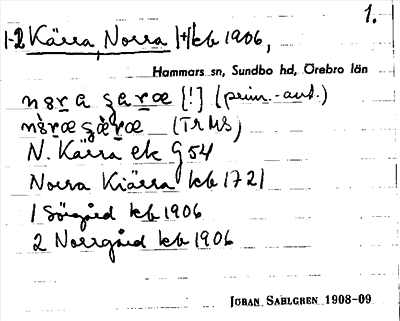 1.
1-2 Kärra, Norra [+] kb 1906,
Hammars sn, Sundbo hd, Örebro län
[!] (prim.-ant.)
(TRMS)
N. Kärra ek G 54
Norra Kiärra kb 1721
1 Sörgård kb 1906
2 Norrgård kb 1906
JÖRAN SAHLGREN 1908-09